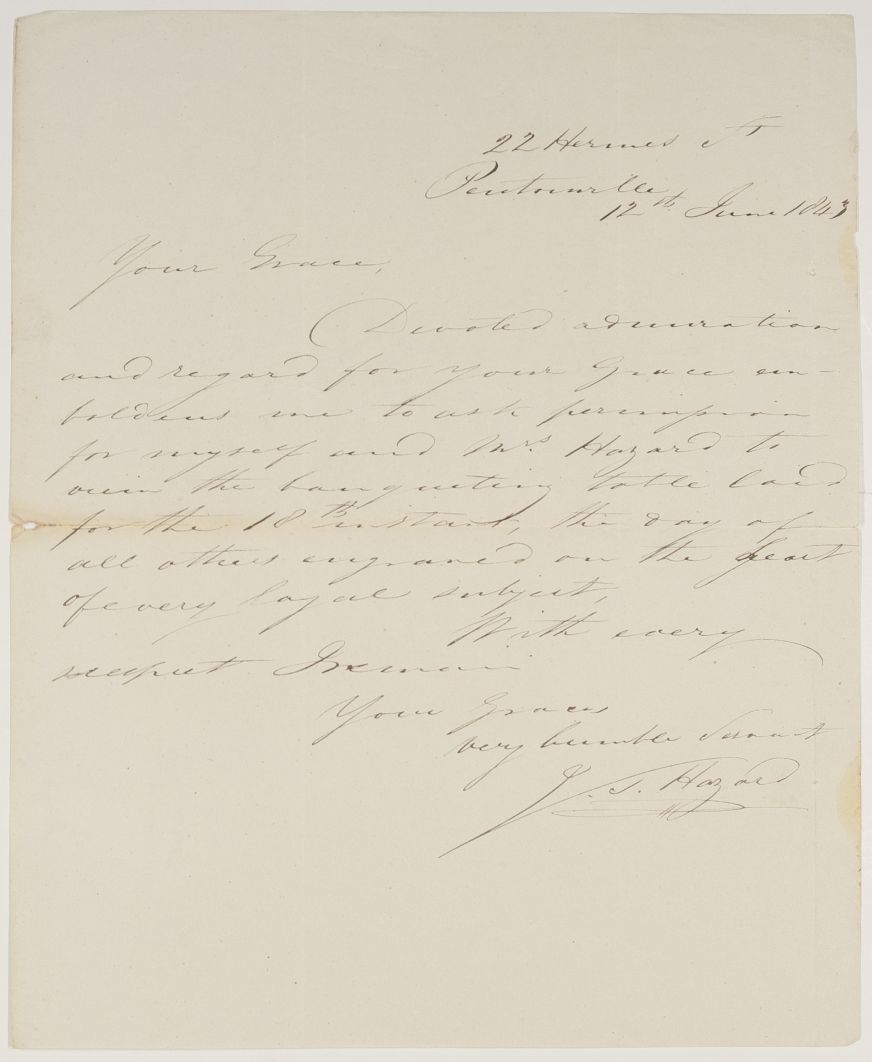 22 Hermes St
Pentonville
12th June 1843
Your Grace,
Devoted admiration
and regard for your Grace em-
boldens me to ask permission
for myself and Mrs. Hazard to
view the banqueting table laid
for the 18th instant, the day of
all others engraved on the heart
of every loyal subject,
With every
respect I remain
Your Graces
very humble Servant
J. S. Hazard